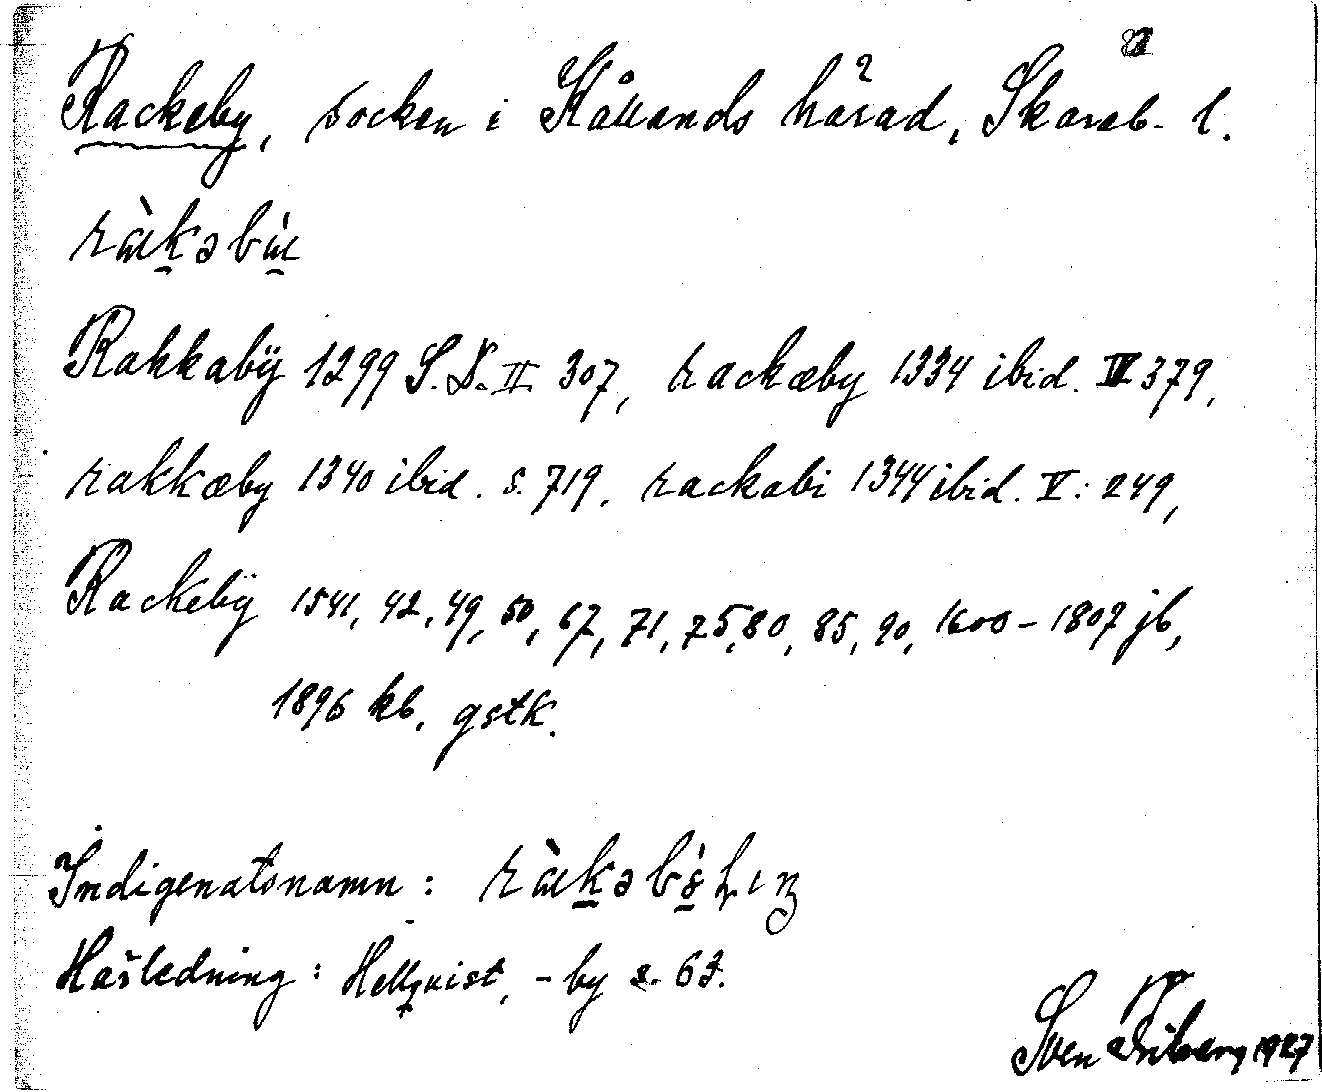 Rackeby, socken i Kållands härad, Skarab. l.
Rakkabÿ 1299 S. D. II 307, rackæby 1334 ibid. IV 379,
rakkæby 1340 ibid. s. 719. rackabi 1344 ibid. V: 249,
Rackebÿ 1541, 42, 49, 50, 67, 71, 75, 80, 85, 90, 1600–1807 jb,
1896 kb. gstk.
Indigenatsnamn:
Härledning: Hellqvist, -by s. 63.
Sven Friberg 1927